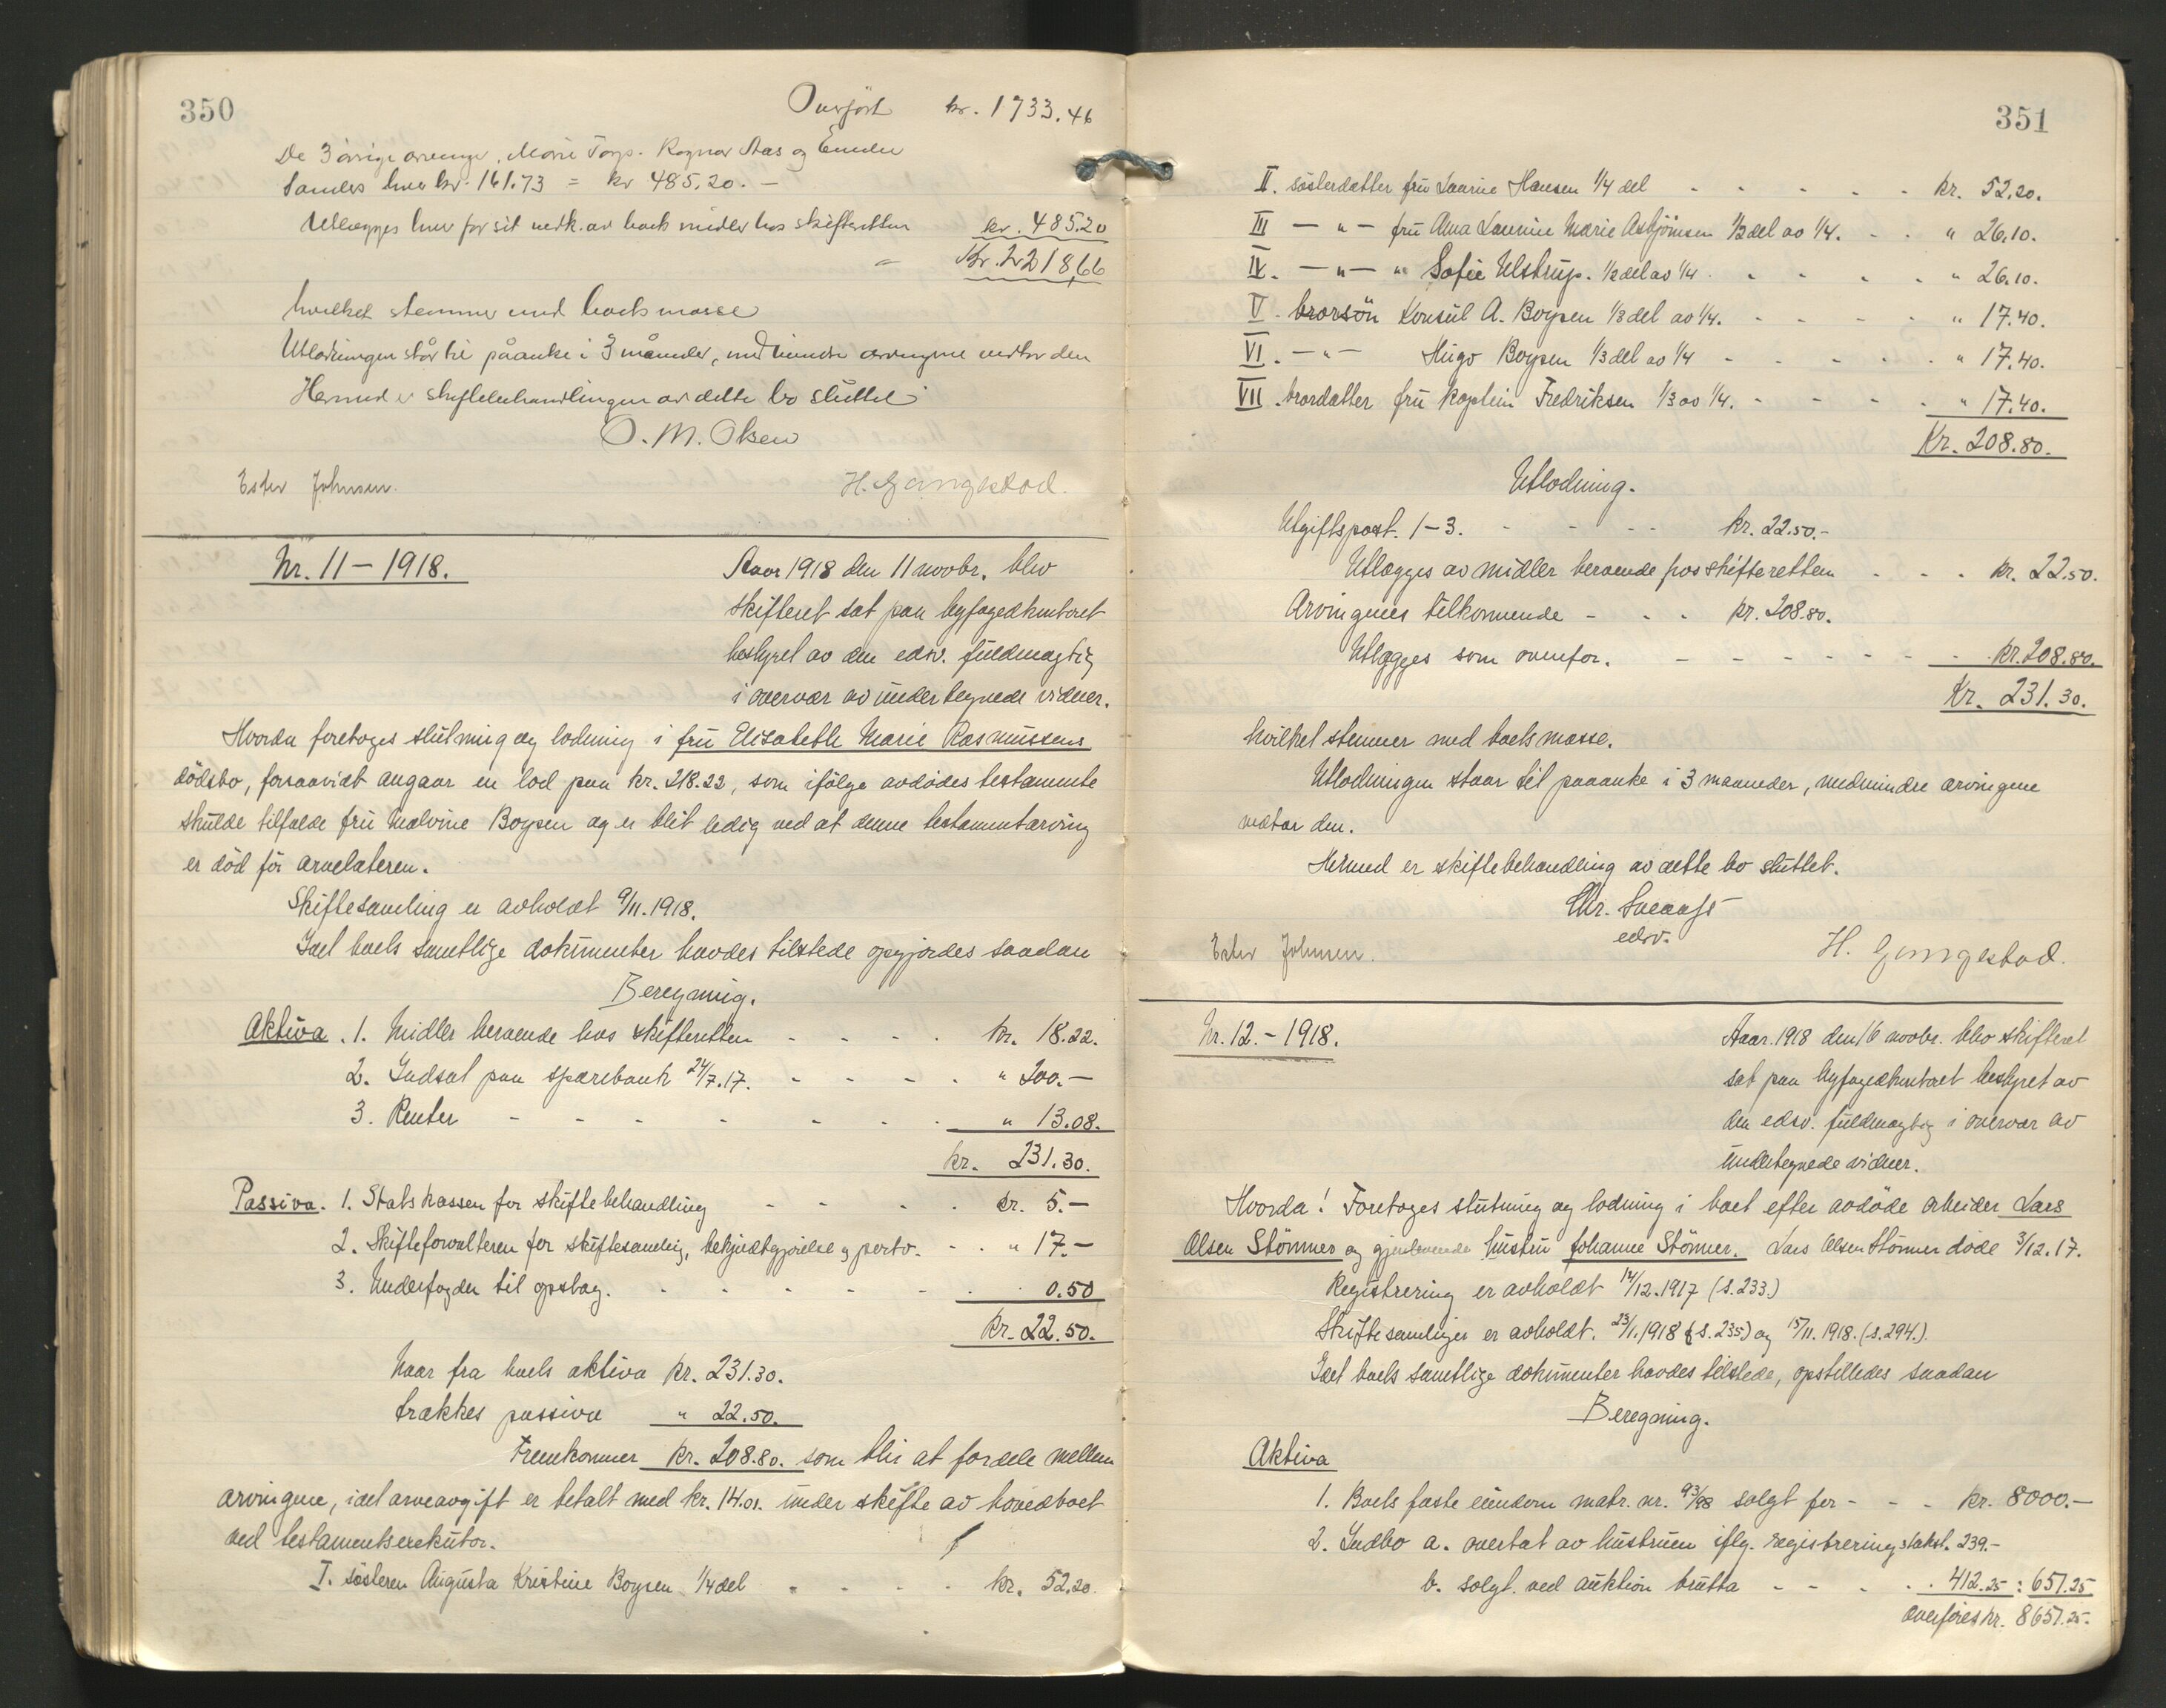 350
Overført kr. 1733.46
De 3 øvrige arvinge, Marie Torp. Ragnar Aas og
hver kr. 161.73 = kr 485.20. —
Utlægges hver for sit vedk. av boets midler hos skifteretten kr. 485.20
= Kr. 2218,66
hvilket stemmer med boets masse
Utlodningen står til påanke i 3 måneder, medmindre arvingene vedtar den
Hermed er skiftebehandlingen av dette bo sluttet
O. M. Olsen
Ester Johnsen. H. Gangestad.
Nr. 11 — 1918. Aar 1918 den 11 novbr. blev
skifteret sat paa byfogedkontoret
bestyret av den edsv. fuldmægtig
i overvær av undertegnede vidner.
Hvorda foretoges slutning og lodning i fru Elisabeth Marie Rasmussens
dödsbo, forsaavidt angaar en lod paa kr. 218.22, som ifölge avdödes testamente
skulde tilfalde fru Malvine Boysen og er blit ledig ved at denne testamentarving
er död för arveladeren.
Skiftesamling er avholdt 9/11.1918.
Idet boets samtlige dokumenter havdes tilstede opgjordes saadan
Beregning.
Aktiva. 1. Midler beroende hos skifteretten - - - kr. 18.22.
2. Indsat paa sparebank 24/7.17. - - - " 200.—
3. Renter - - - - - - " 13.08.
kr. 231.30.
Passiva. 1. Statskassen for skiftebehandling - - - kr. 5.—
2. Skifteforvalteren for skiftesamling, bekjendtgjörelse og porto. - - " 17.—
3. Underfogden til opslag. - - - - - 0.50
Kr. 22.50.
Naar fra boets aktiva kr. 231.30.
trækkes passiva " 22.50.
Fremkommer kr. 208.80. som blir at fordele mellem
arvingene, idet arveavgift er betalt med kr. 14.01. under skifte av hovedboet
ved testamentsexekutor.
I. søsteren Augusta Kristine Boysen 1/4 del - - - kr. 52.20.
351
II. søsterdatter fru Laurine Hansen 1/4 del - - - - - kr. 52.20.
III — " — fru Anna Laurine Marie Asbjörnsen 1/2 del av 1/4. - - " 26.10.
IV. — " — " Sofie Ulstrup. 1/2 del av 1/4. - - - - " 26.10.
V. brorsön Konsul A. Boysen 1/3 del av 1/4. - - - - " 17.40.
VI. — " — Hugo Boysen 1/3 del av 1/4 - - - - - " 17.40.
VII. brordatter fru Kaptein Fredriksen 1/3 av 1/4. - - - - " 17.40.
Kr. 208.80.
Utlodning.
Utgiftspost. 1—3. - - - - kr. 22.50.-
Utlægges av midler beroende hos skifteretten - - - kr. 22.50.
Arvingenes tilkommende - - - kr. 208.80.
Utlægges som ovenfor. - - - - - - - kr. 208.80.
Kr. 231.30.
hvilket stemmer med boets masse.
Utlodningen staar til paaanke i 3 maaneder, medmindre arvingene
vedtar den.
Hermed er skiftebehandling av dette bo sluttet.
Chr.
edsv.
Ester Johnsen. H. Gangestad.
Nr. 12. - 1918. Aaar. 1918 den 16 novbr. blev skifteret
sat paa byfogedkontoret bestyret av
den edsv. fuldmægtig i overvær av
undertegnede vidner.
Hvorda! Foretoges slutning og lodning i boet efter avdöde arbeider Lars
Olsen Störmer og gjenlevende hustru Johanne Störmer. Lars Olsen Störmer döde 3/12.17.
Registrering er avholdt 14/12.1917 (s.233.)
Skiftesamlinger er avholdt. 23/1.1918 (s. 235.) og 15/11.1918. (s.294.)
Idet boets samtlige dokumenter havdes tilstede, opstilledes saadan
Beregning.
Aktiva
1. Boets faste eiendom matr. nr. 93/98 solgt for - - - kr. 8000.—
2. Indbo a. overtat av hustruen iflg. registreringstakst. 239.—
b. solgt ved auktion brutto - - - - 412.25 : 651.25
overföres kr. 8651.25.